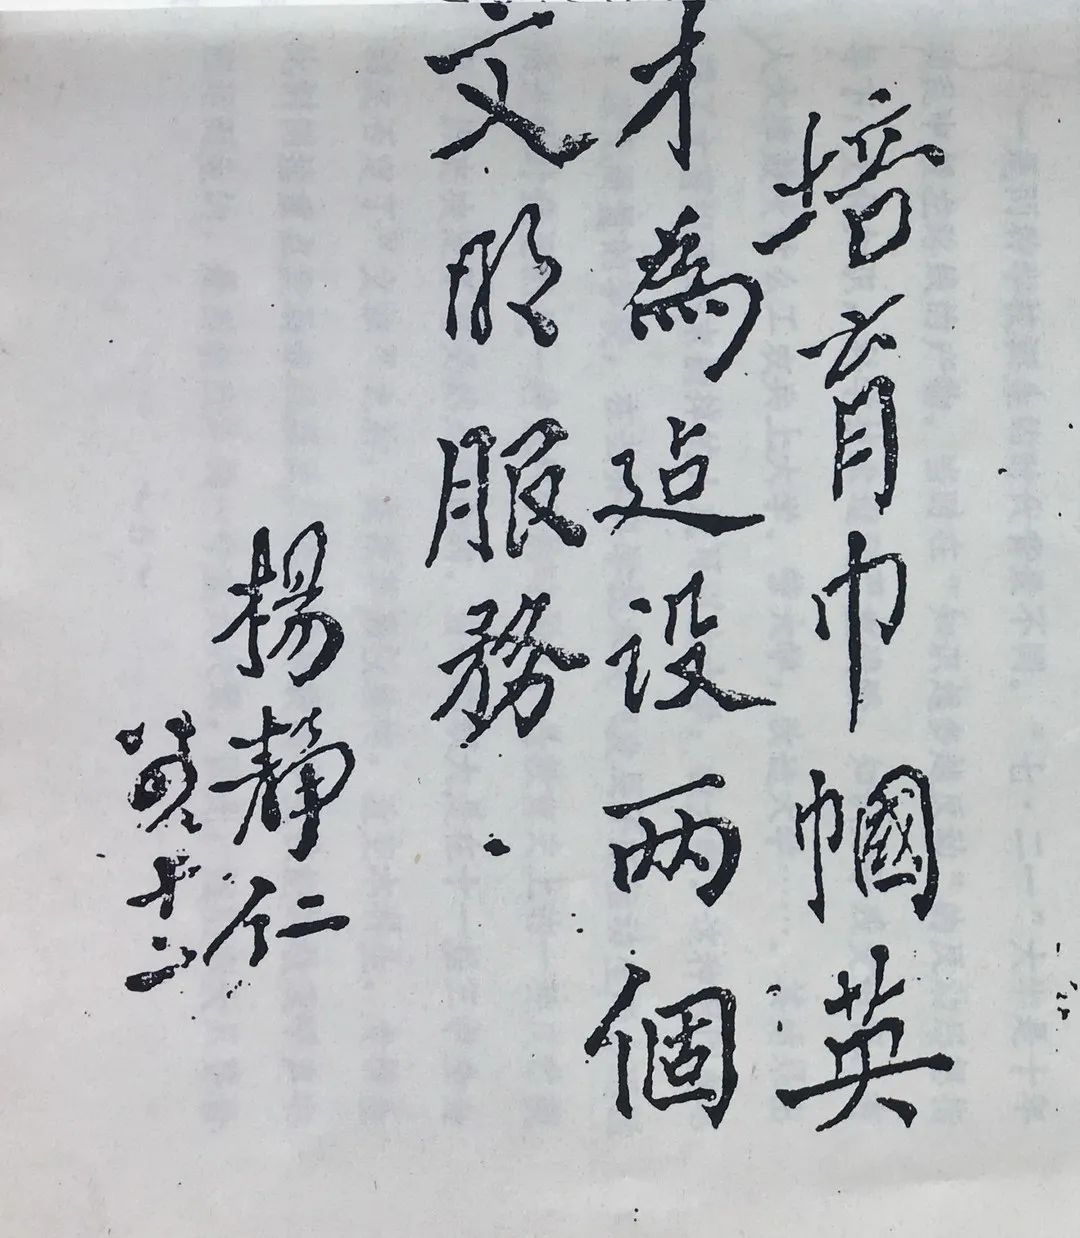 培育巾幗英
才為建设两個
文明服務
楊靜仁
十二